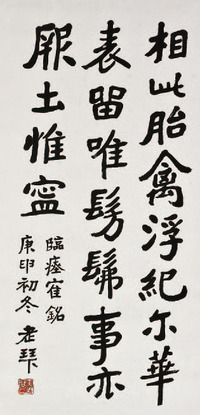 相此胎禽浮紀尔華
表留唯髣髴事亦
厥土惟寍
臨瘞隺銘
庚申初冬老琹